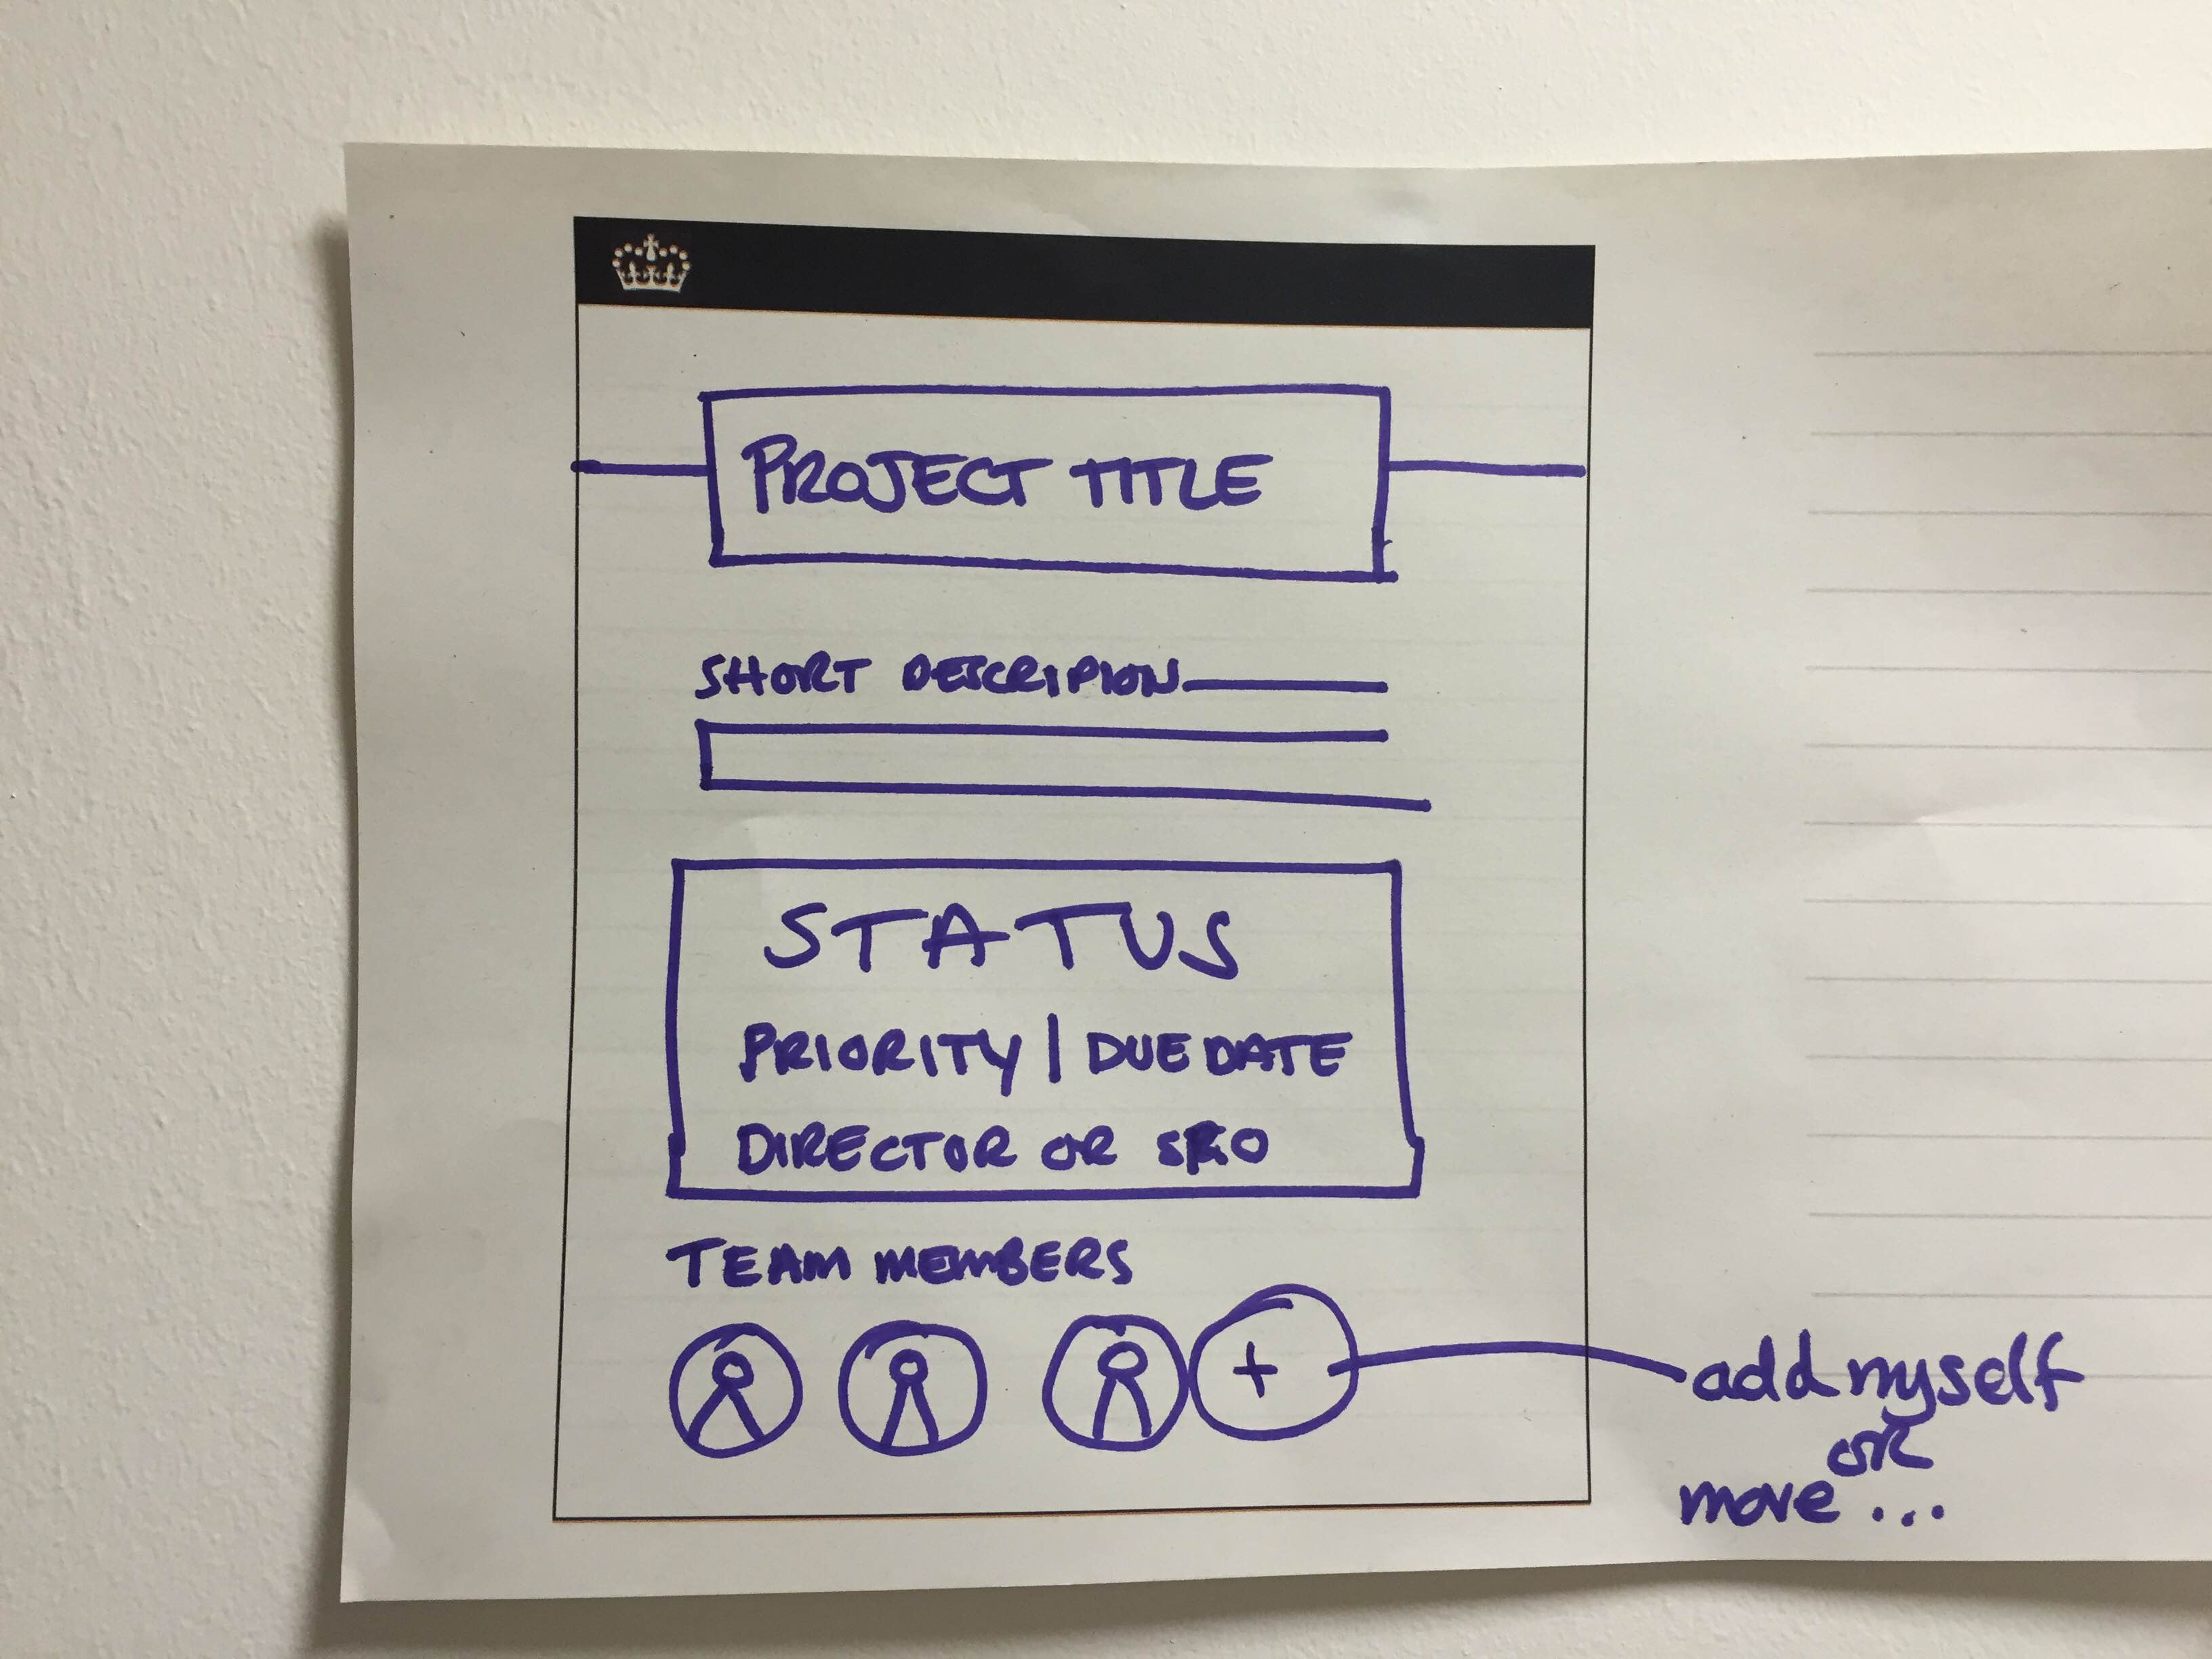 PROJECT TITLE
SHORT DESCRIPION
STATUS
PRIORITY | DUE DATE
DIRECTOR OR SRO
TEAM MEMBERS
+
add myself
OR
move...